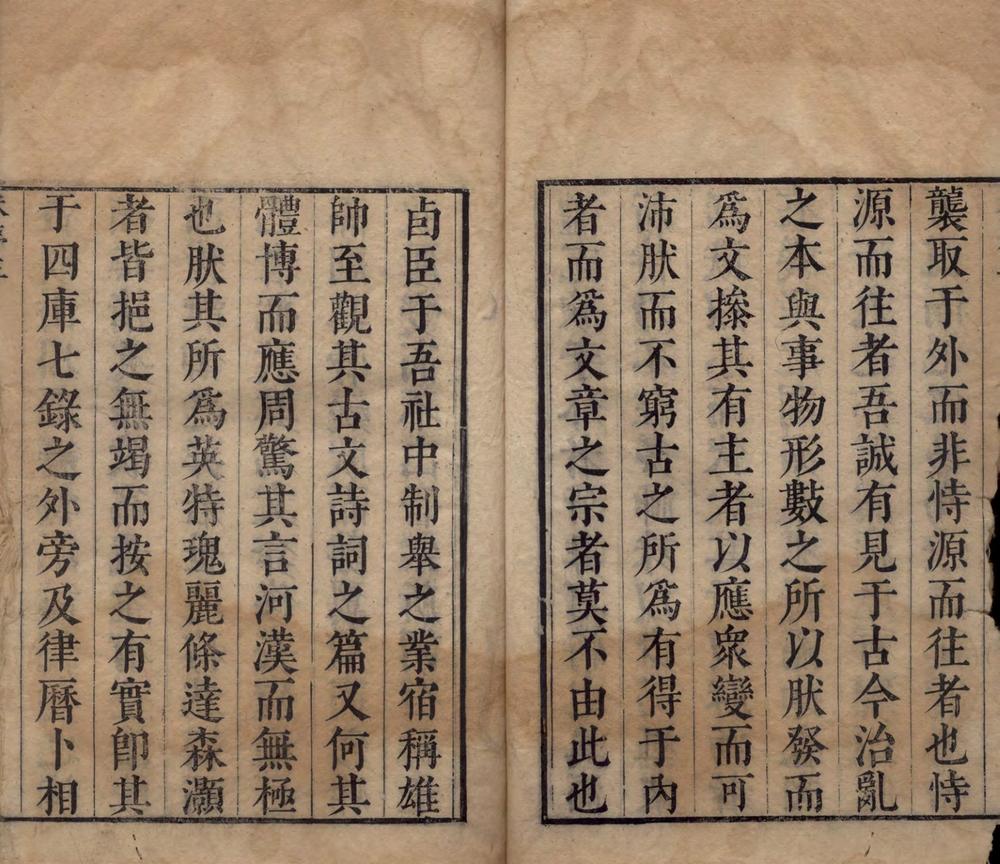 襲取于外而非恃源而往者也恃
源而往者吾誠有見于古今治亂
之本與事物形數之所以肰發而
爲文摻其有主者以應衆變而可
沛肰而不窮古之所爲有得于內
者而爲文章之宗者莫不由此也
卣臣于吾社中制舉之業宿稱雄
帥至觀其古文詩詞之篇又何其
體博而應周驚其言河漢而無極
也肰其所爲英特瑰麗條達森灝
者皆挹之無竭而按之有實卽其
于四庫七錄之外旁及律曆卜相